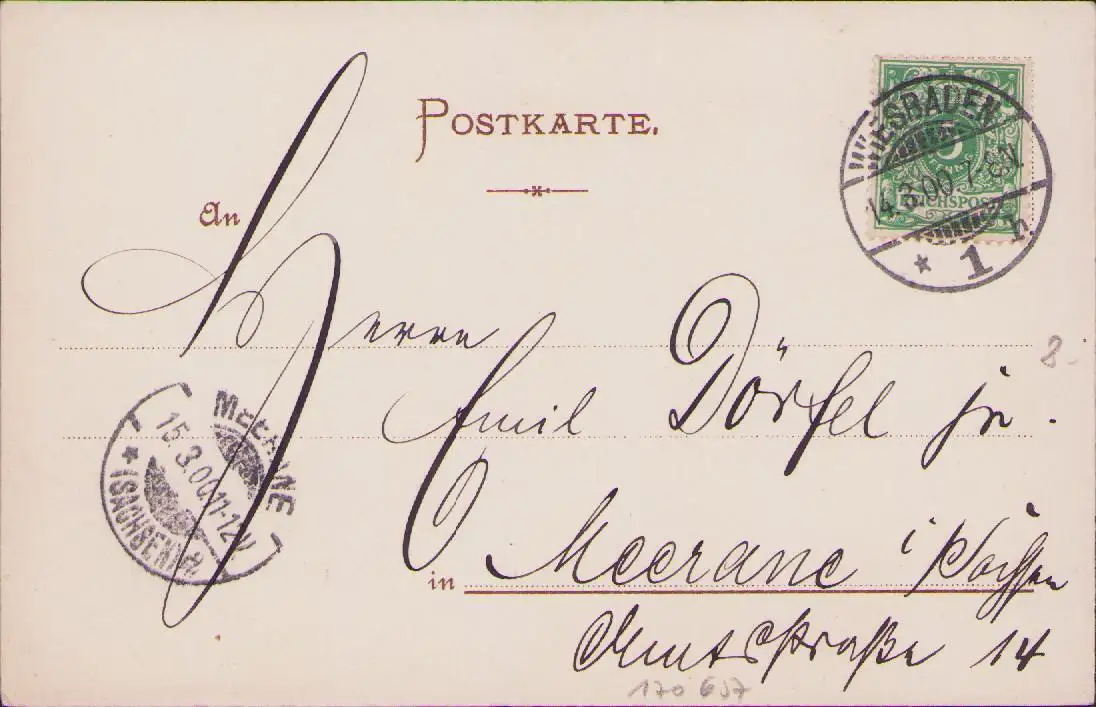 POSTKARTE.
WIESBADEN
5
REICHSPOST
14.3.00 7-8N.
* 1 n
An
Herrn
8.-
Emil Dörfel jr.
MEERANE
15.3.00.11-12V.
* (SACHSEN)
in Meerane i/Sachsen
Amtsstraße 14
170 637